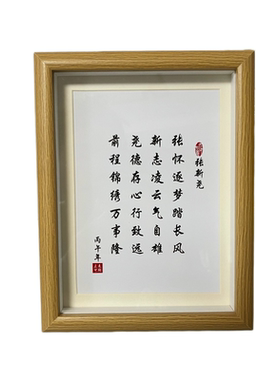 张新尧
张怀逐梦踏长风
新志凌云气自雄
尧德存心行致远
前程锦绣万事隆
丙午年